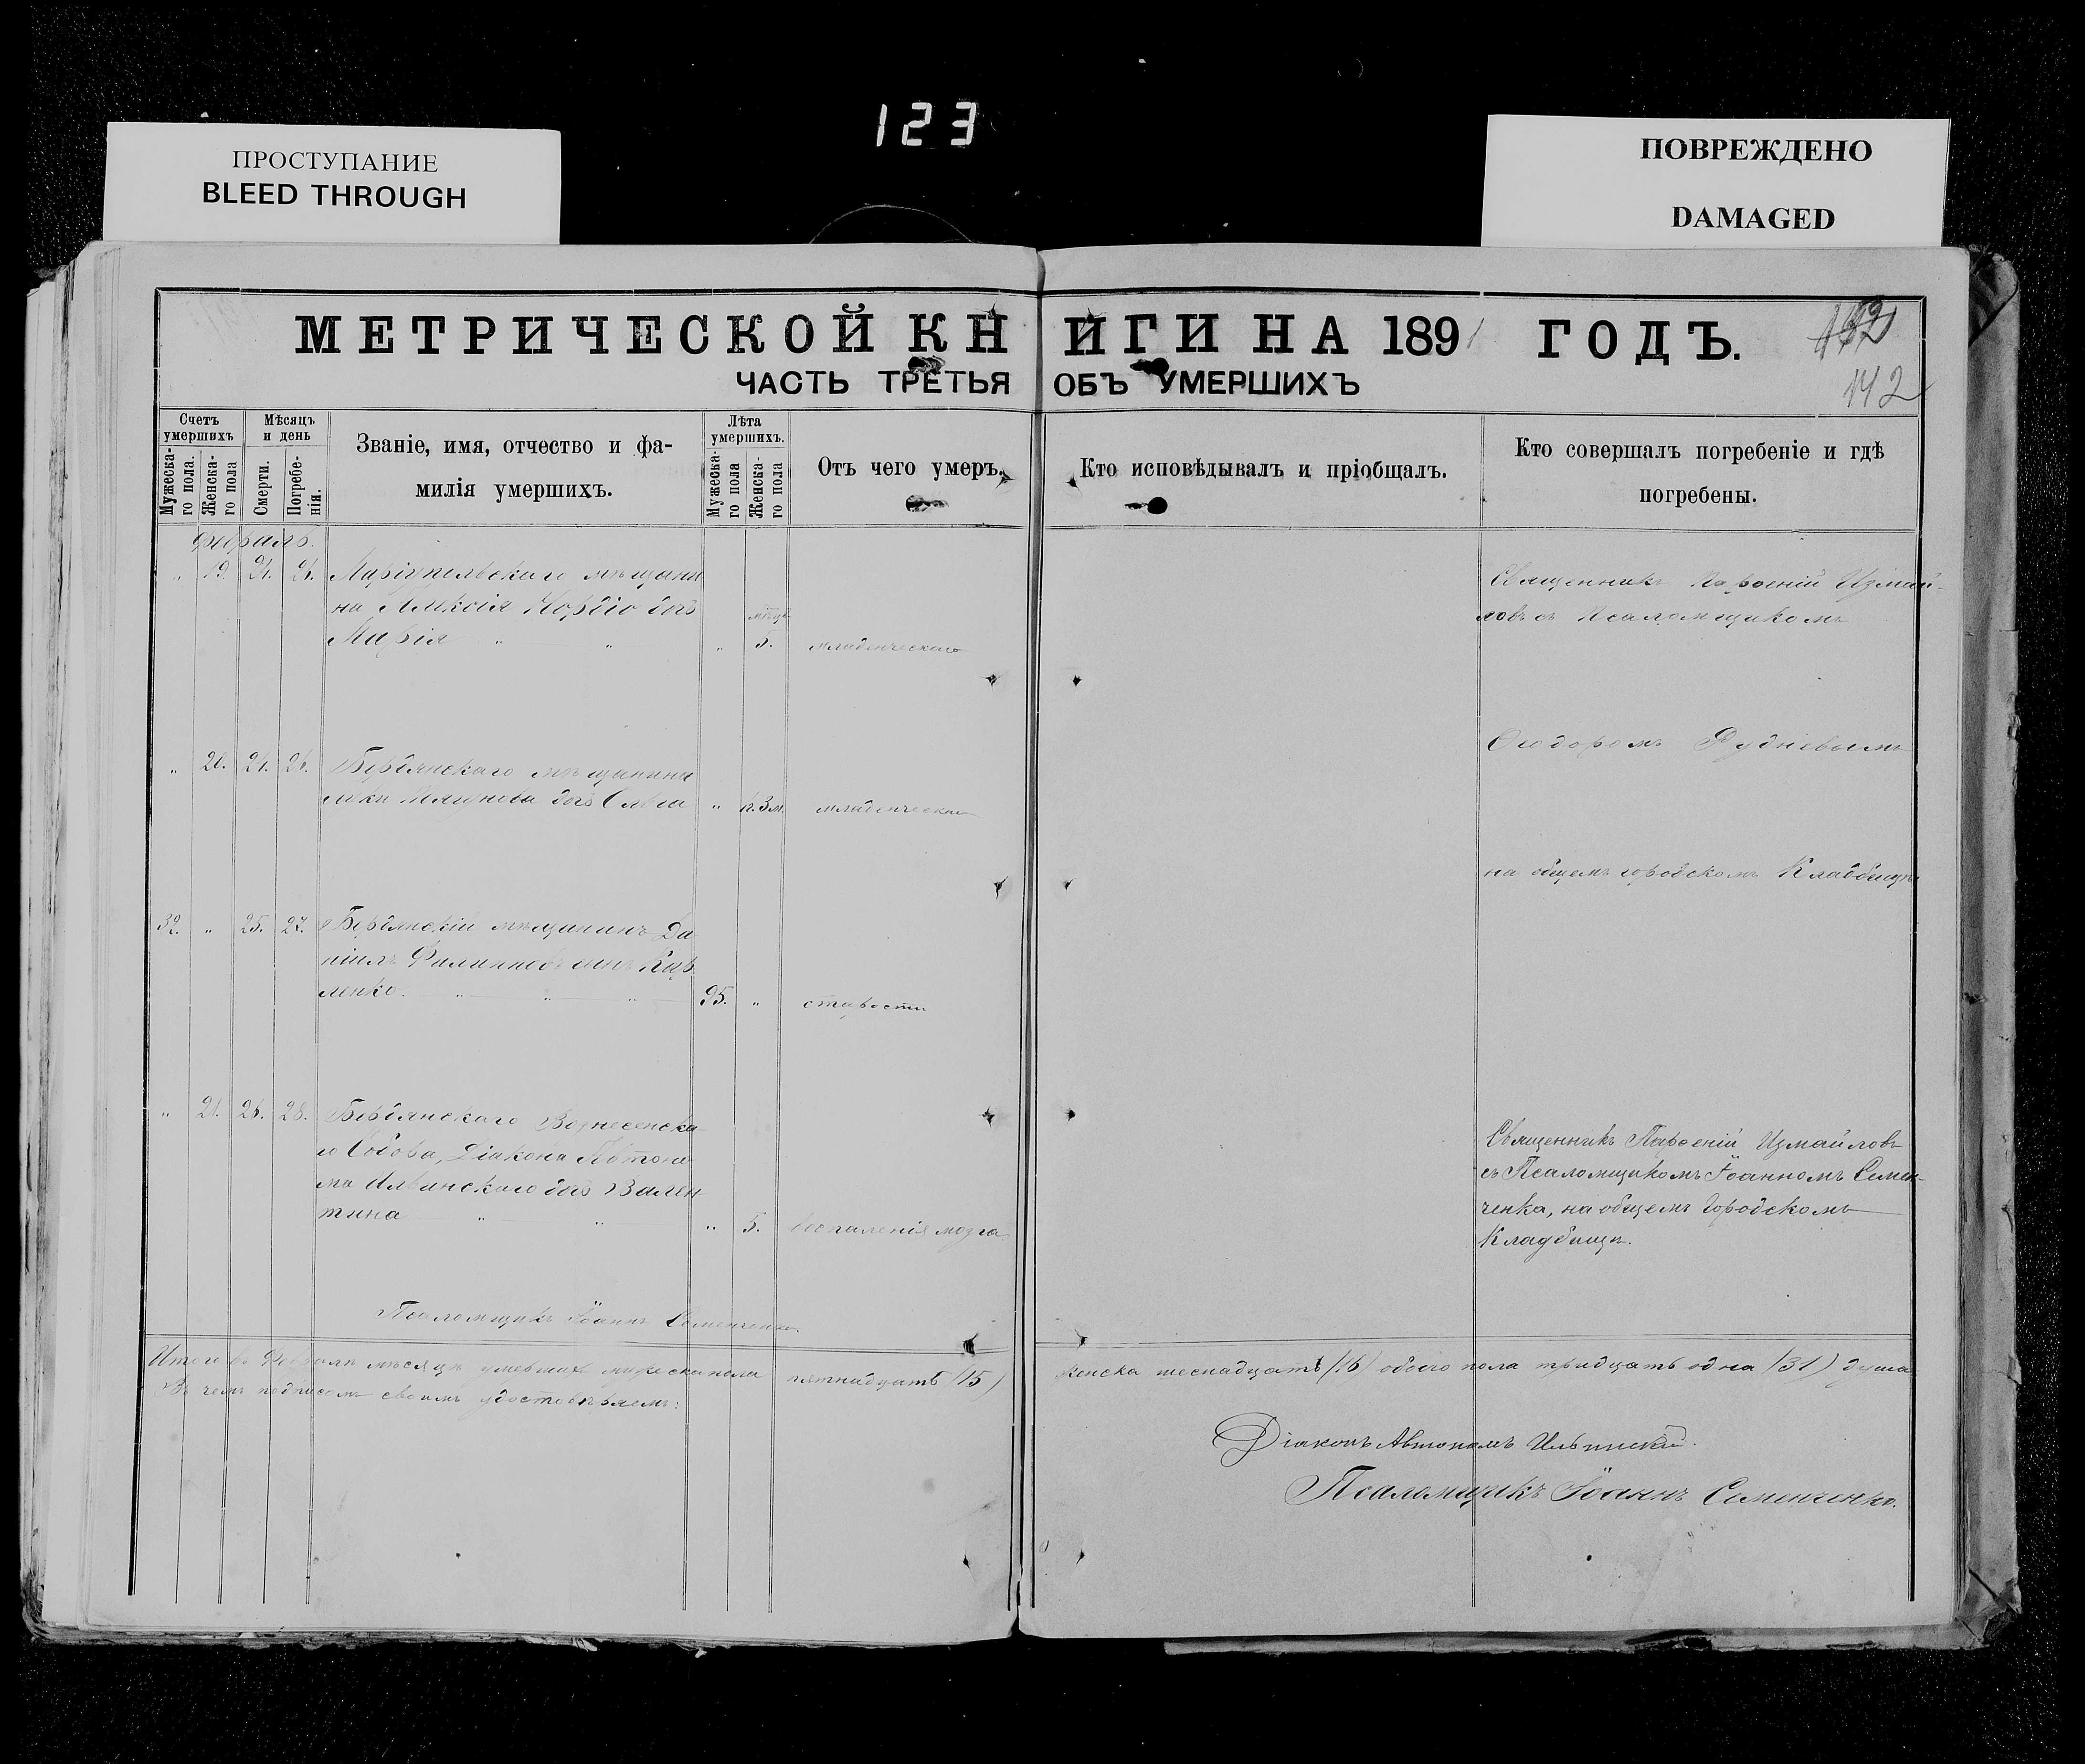 123
ПРОСТУПАНИЕ
BLEED THROUGH
ПОВРЕЖДЕНО
DAMAGED
МЕТРИЧЕСКОЙ КНИГИ НА 1891 ГОДЪ.
ЧАСТЬ ТРЕТЬЯ ОБЪ УМЕРШИХЪ
142
Счетъ умершихъ
Мужеска-го пола.
Женска-го пола
Мѣсяцъ и день
Смерти.
Погребе-нія.
Званіе, имя, отчество и фа-
милія умершихъ.
Лѣта умершихъ.
Мужеска-го пола
Женска-го пола
Отъ чего умеръ.
Кто исповѣдывалъ и пріобщалъ.
Кто совершалъ погребеніе и гдѣ
погребены.
Февраль.
" 19. 21.
Маріупольскаго мѣщани
на Алексія дочь
Марія " "
" 5. младенческаго
Священникъ Парѳеній Измай-
ловъ съ Псаломщикомъ
Ѳеодоромъ Рудневымъ
на общемъ городскомъ Кладбищѣ
" 20. 21.
Бердянскаго мѣщанина
дочь Ольга " 3 м. младенческаго
32. " 25. 27. Бердянскій мѣщанинъ Да
ніилъ Филипповъ сынъ
ленко. " " " 95. " старости
" 21. 26. 28. Бердянскаго Вознесенска
го Собора, Діакона Автоно
ма Ильинскаго дочь Вален
тина " " " 5. воспаленія мозга
Священникъ Парѳеній Измайловъ
съ Псаломщикомъ Іоанномъ Семен-
ченка, на общемъ Городскомъ
Кладбищѣ.
Псаломщикъ Іоаннъ Семенченко.
Итого въ Февралѣ мѣсяцѣ умершихъ мужеска пола пятнадцать (15) женска шеснадцать (16) обоего пола тридцать одна (31) душа
В чемъ подписомъ своимъ удостовѣряемъ:
Діаконъ Автономъ Ильинскій.
Псаломщикъ Іоаннъ Семенченко.